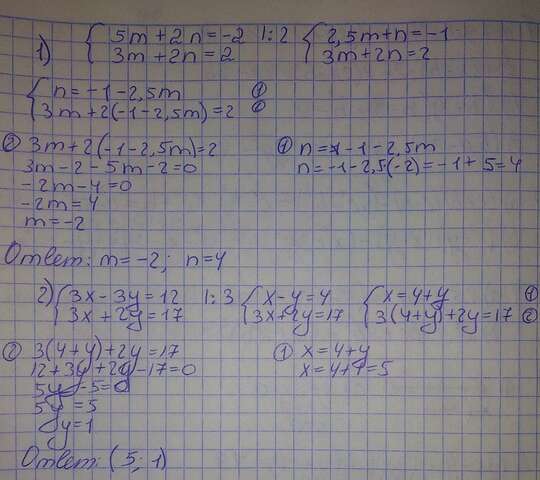 1) { 5m + 2n = -2 | : 2 { 2,5m + n = -1
3m + 2n = 2 3m + 2n = 2
{ n = -1 - 2,5m ①
3m + 2(-1 - 2,5m) = 2 ②
② 3m + 2(-1 - 2,5m) = 2 ① n = -1 - 2,5m
3m - 2 - 5m - 2 = 0 n = -1 - 2,5(-2) = -1 + 5 = 4
-2m - 4 = 0
-2m = 4
m = -2
Ответ: m = -2; n = 4
2) { 3x - 3y = 12 | : 3 { x - y = 4 { x = 4 + y ①
3x + 2y = 17 3x + 2y = 17 3(4 + y) + 2y = 17 ②
② 3(4 + y) + 2y = 17 ① x = 4 + y
12 + 3y + 2y - 17 = 0 x = 4 + 1 = 5
5y - 5 = 0
5y = 5
y = 1
Ответ: (5; 1)